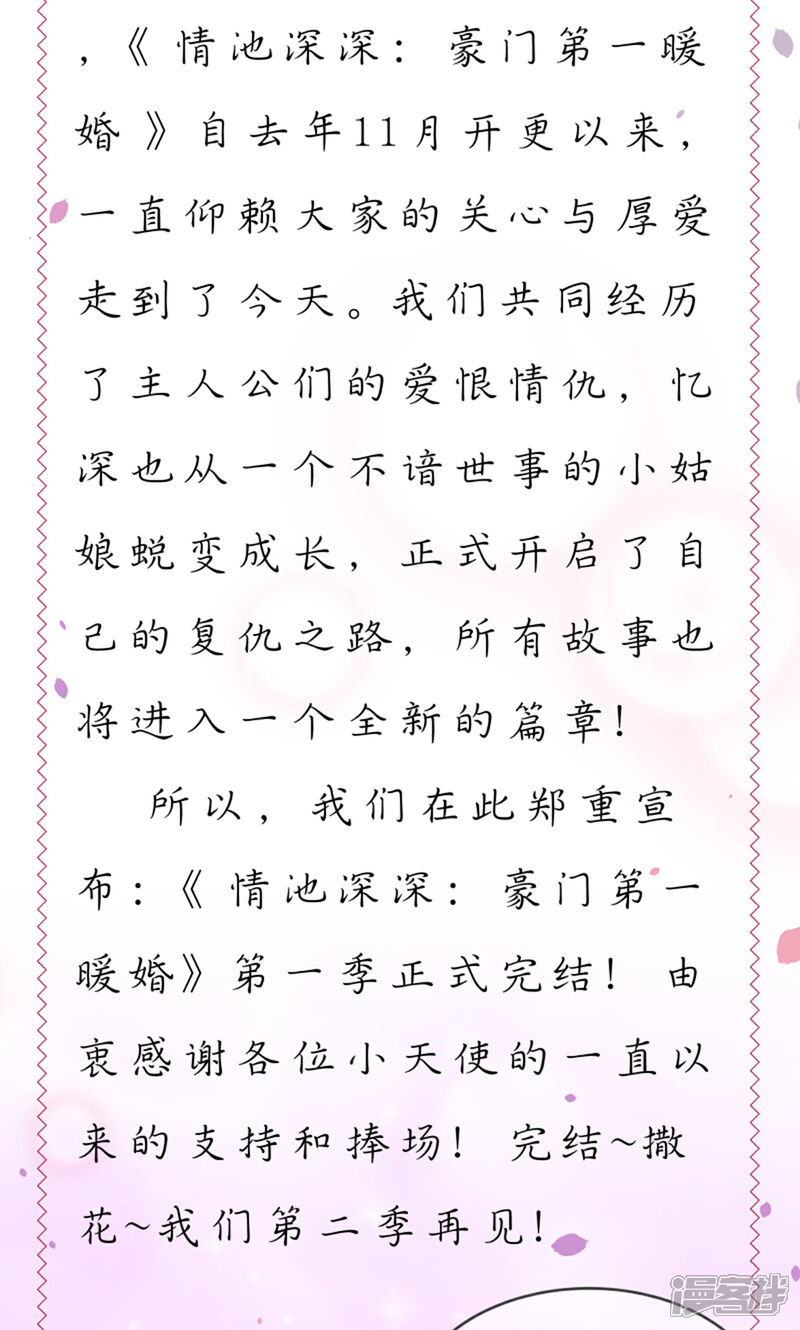 ，《情池深深：豪门第一暖
婚》自去年11月开更以来，
一直仰赖大家的关心与厚爱
走到了今天。我们共同经历
了主人公们的爱恨情仇，忆
深也从一个不谙世事的小姑
娘蜕变成长，正式开启了自
己的复仇之路，所有故事也
将进入一个全新的篇章！
所以，我们在此郑重宣
布：《情池深深：豪门第一
暖婚》第一季正式完结！由
衷感谢各位小天使的一直以
来的支持和捧场！完结~撒
花~我们第二季再见！
漫客栈